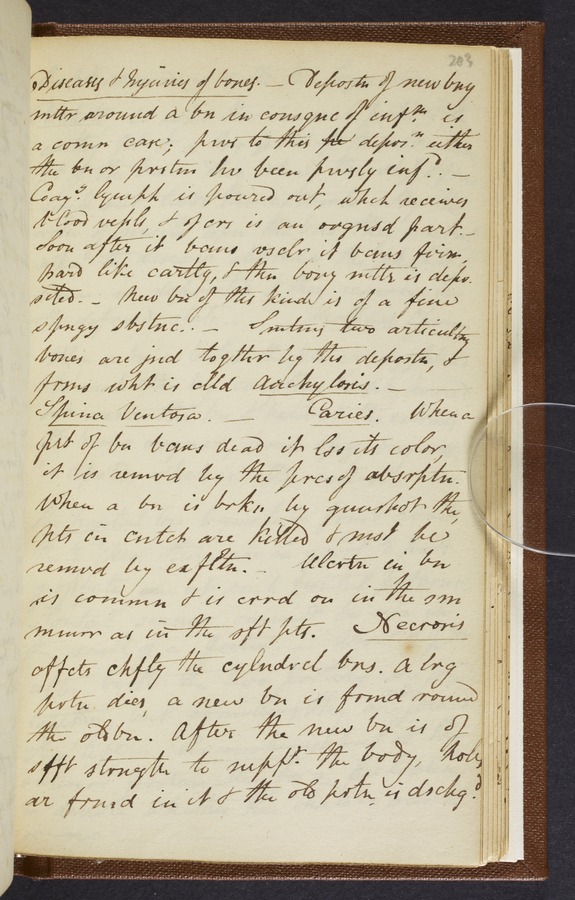 203
Diseases & Injuries of bones. — Depostn of new bny
mttr around a bn in consqnc of infn. is
a comn case; prvs to this depos.n either
the bn or prstm hv been prvsly infd. —
Coagd. lymph is poured out, which receives
blood vspls, & ofcrs is an orgnsd part. —
Soon after it bcms vsclr it bcms firm,
hard like cartlg, & then bony mttr is depo-
sited. — New bn of this kind is of a fine
spngy sbstnc. — Smtms two articultng
bones are jnd togthr by this depostn, &
frms wht is clld Anchylosis. —
Spina Ventosa. — Caries. When a
prt of bn bcms dead it lss its color,
it is removd by the prcs of absrptn.
When a bn is brkn by gunshot the
pts in cntct are killed & must be
removd by exfltn. — Ulcrtn in bn
is commn & is crrd on in the sm
mnnr as in the sft pts. Necrosis
affcts chfly the cylndrcl bns. A lrg
portn dies, a new bn is frmd round
the old bn. After the new bn is of
sfft strength to suppt. the body, holes
ar frmd in it & the old portn is dschgd.